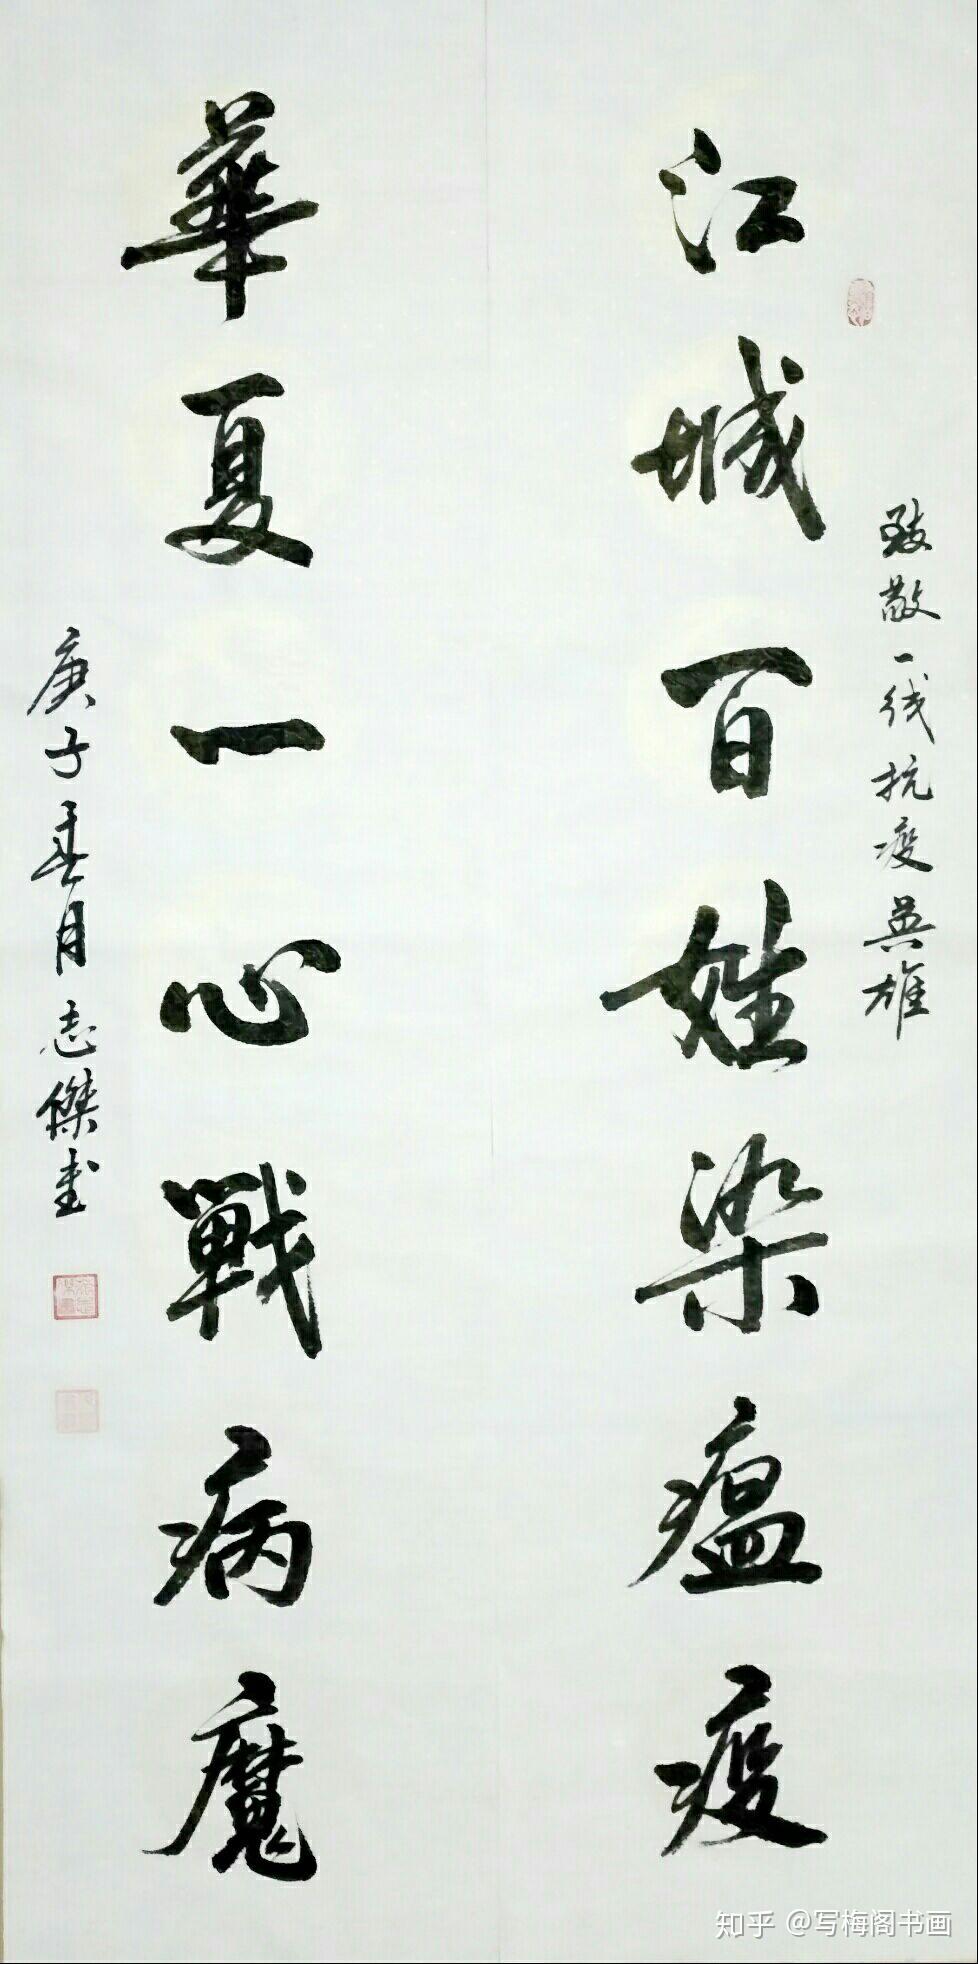 致敬一线抗疫英雄
江城百姓染瘟疫
華夏一心戰病魔
庚子春月志傑書
知乎 @写梅阁书画